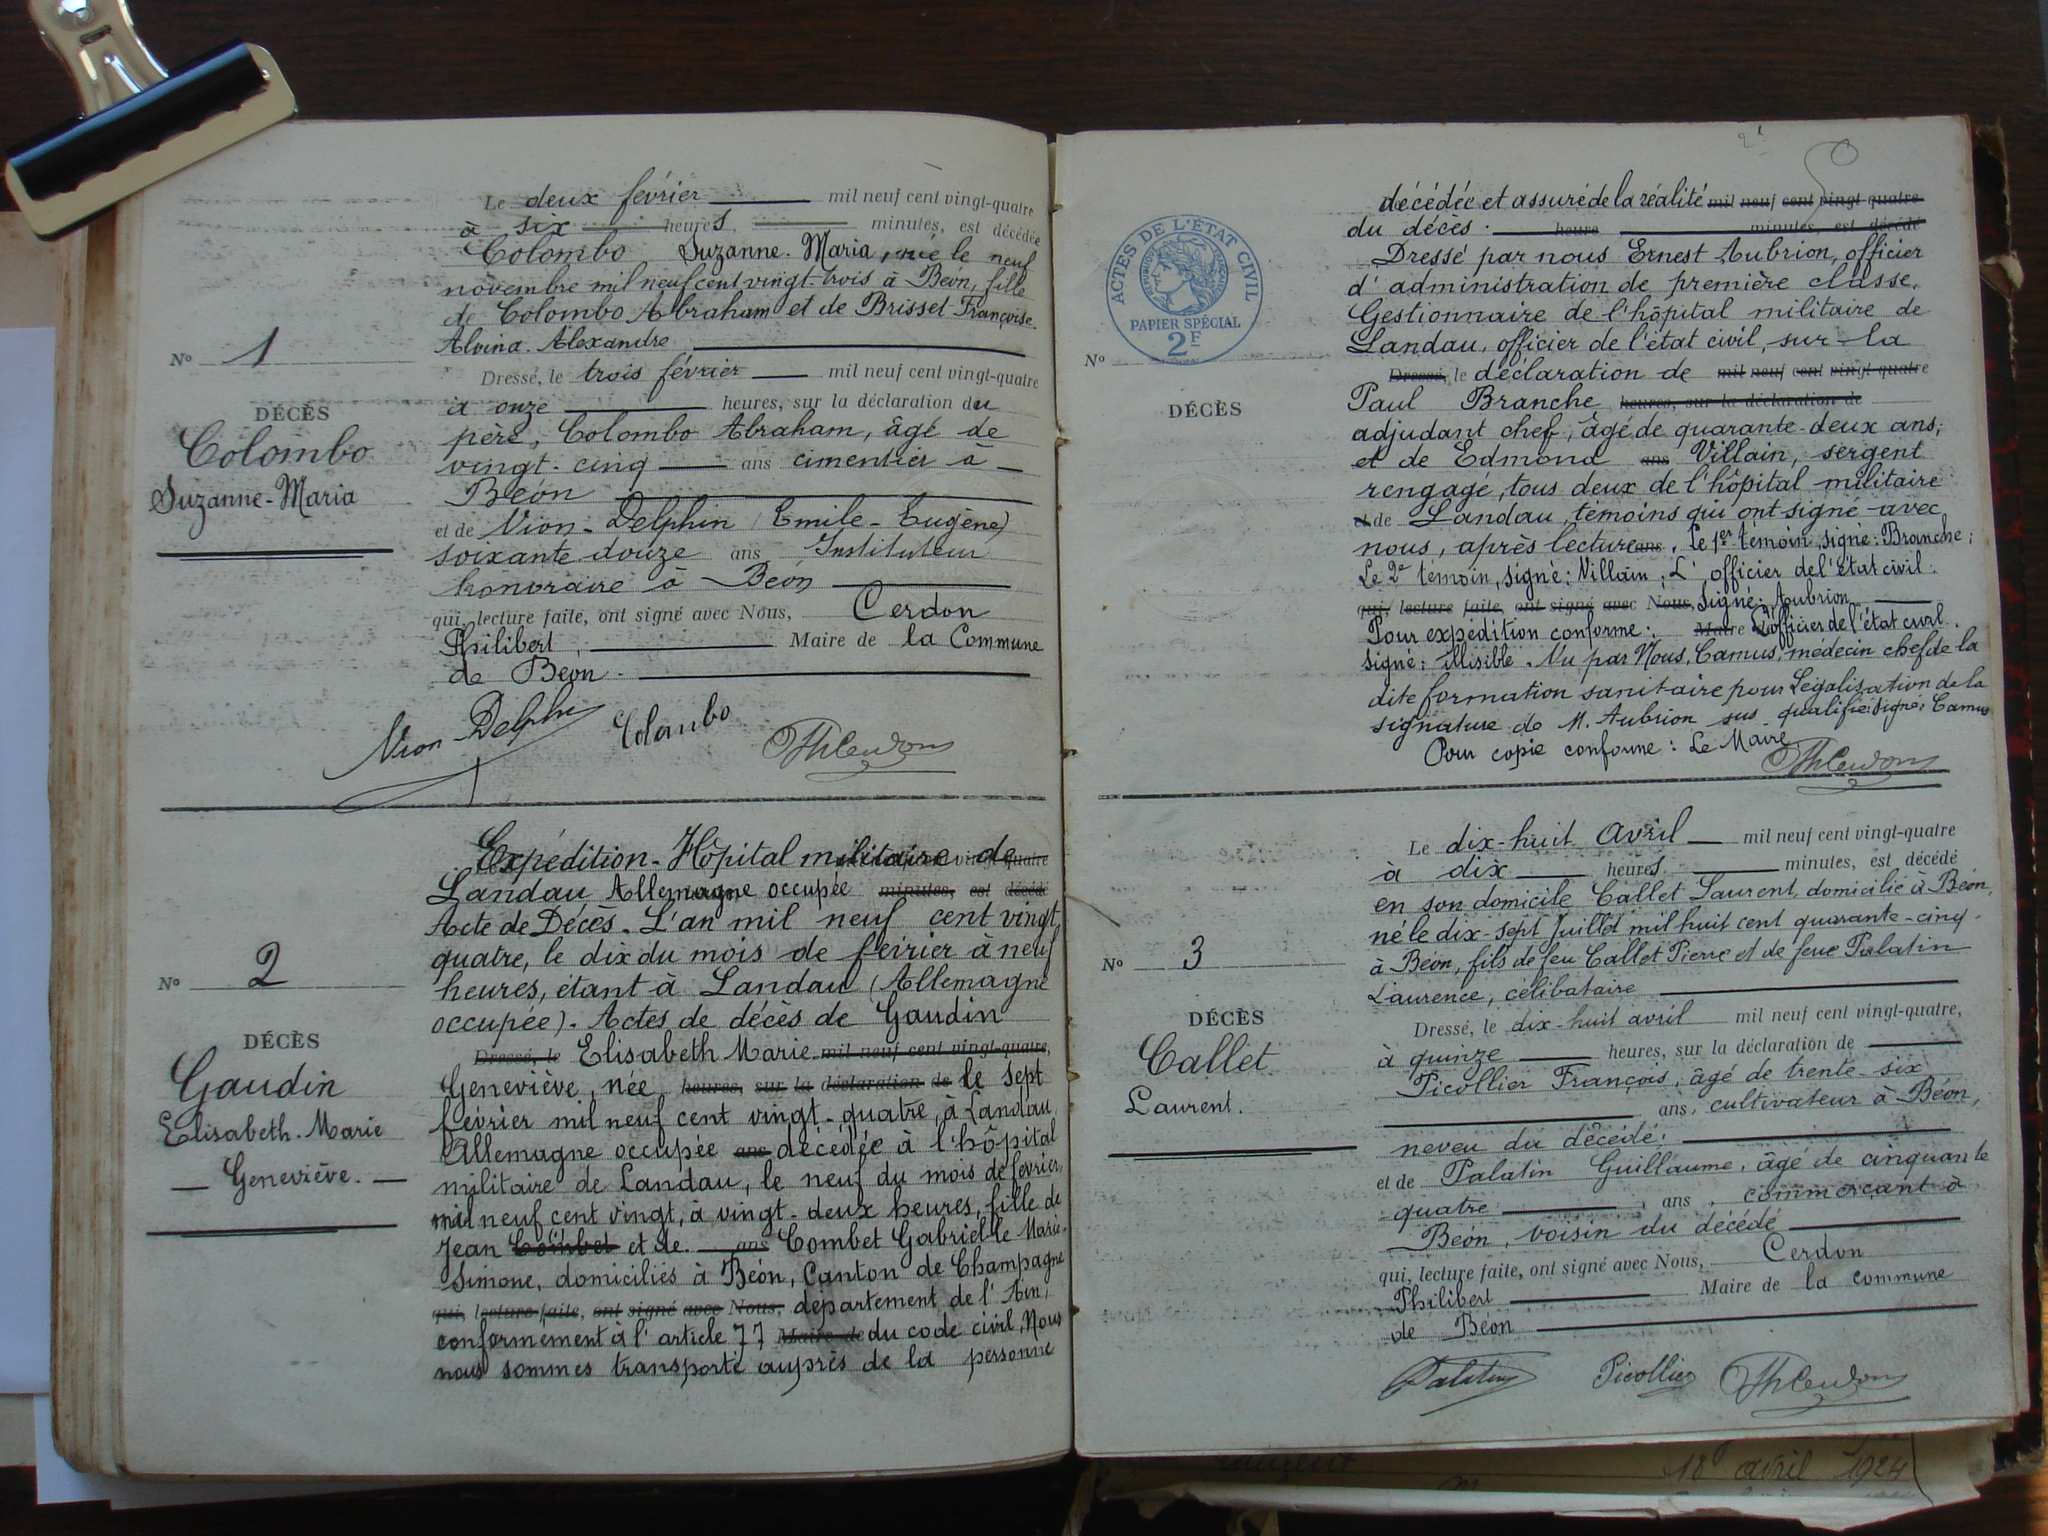 Le deux février mil neuf cent vingt-quatre
à six heures, minutes, est décédée
Colombo Suzanne-Maria, née le neuf
novembre mil neuf cent vingt-trois à Béon, fille
de Colombo Abraham et de Brisset Françoise
Alvina-Alexandre
Dressé, le trois février mil neuf cent vingt-quatre
à onze heures, sur la déclaration du
père, Colombo Abraham, âgé de
vingt-cinq ans cimentier à
Béon
et de Vion-Delphin (Emile-Eugène)
soixante douze ans Instituteur
honoraire à Béon
qui, lecture faite, ont signé avec Nous, Cerdon
Philibert, Maire de la Commune
de Béon.
No 1
DÉCÈS
Colombo
Suzanne-Maria
Vion Delphin Colombo PhCerdon
Expédition-Hôpital militaire de
Landau Allemagne occupée minutes, est décédé
Acte de Décès. L'an mil neuf cent vingt
quatre, le dix du mois de février à neuf
heures, étant à Landau (Allemagne
occupée). Actes de décès de Gaudin
Dressé, le Elisabeth Marie mil neuf cent vingt-quatre,
Geneviève, née heures, sur la déclaration de le sept
février mil neuf cent vingt-quatre, à Landau
Allemagne occupée ans décédée à l'hôpital
militaire de Landau, le neuf du mois de février,
mil neuf cent vingt, à vingt-deux heures, fille de
Jean Combet et de ans Combet Gabrielle Marie-
Simone, domiciliés à Béon, Canton de Champagne
qui, lecture faite, ont signé avec Nous, département de l'Ain,
conformement à l'article 77 Maire de du code civil, Nous
nous sommes transporté auprès de la personne
No 2
DÉCÈS
Gaudin
Elisabeth-Marie
Geneviève.
décédée et assuré de la réalité mil neuf cent vingt-quatre
du décès. heure minutes, est décédé
Dressé par nous Ernest Aubrion, officier
d'administration de première classe,
Gestionnaire de l'hôpital militaire de
Landau, officier de l'état civil, sur la
Dressé, le déclaration de mil neuf cent vingt-quatre
Paul Branche heures, sur la déclaration de
adjudant chef, âgé de quarante-deux ans,
et de Edmond ans Villain, sergent
rengagé, tous deux de l'hôpital militaire
et de Landau, témoins qui ont signé avec
nous, après lecture ans. Le 1er témoin, signé: Branche;
Le 2e témoin, signé: Villain, L'officier de l'état civil:
qui, lecture faite, ont signé avec Nous, Signé: Aubrion
Pour expédition conforme: Maire de L'officier de l'état civil.
signé: illisible. Vu par Nous, Camus, médecin chef de la
dite formation sanitaire pour Légalisation de la
signature de M. Aubrion sus-qualifié: signé: Camus
Pour copie conforme: Le Maire
PhCerdon
ACTES DE L'ÉTAT CIVIL
RÉPUBLIQUE FRANÇAISE
PAPIER SPÉCIAL
2F
No
DÉCÈS
Le dix-huit Avril mil neuf cent vingt-quatre
à dix heures minutes, est décédé
en son domicile Callet Laurent, domicilié à Béon,
né le dix-sept Juillet mil huit cent quarante-cinq
à Béon, fils de feu Callet Pierre et de feue Palatin
Laurence, célibataire
Dressé, le dix-huit avril mil neuf cent vingt-quatre,
à quinze heures, sur la déclaration de
Picollier François, âgé de trente-six
ans, cultivateur à Béon,
neveu du décédé.
et de Palatin Guillaume, âgé de cinquante
quatre, ans, commerçant à
Béon, voisin du décédé
qui, lecture faite, ont signé avec Nous, Cerdon
Philibert Maire de la commune
de Béon
No 3
DÉCÈS
Callet
Laurent.
Palatin Picollier PhCerdon
18 avril 1924